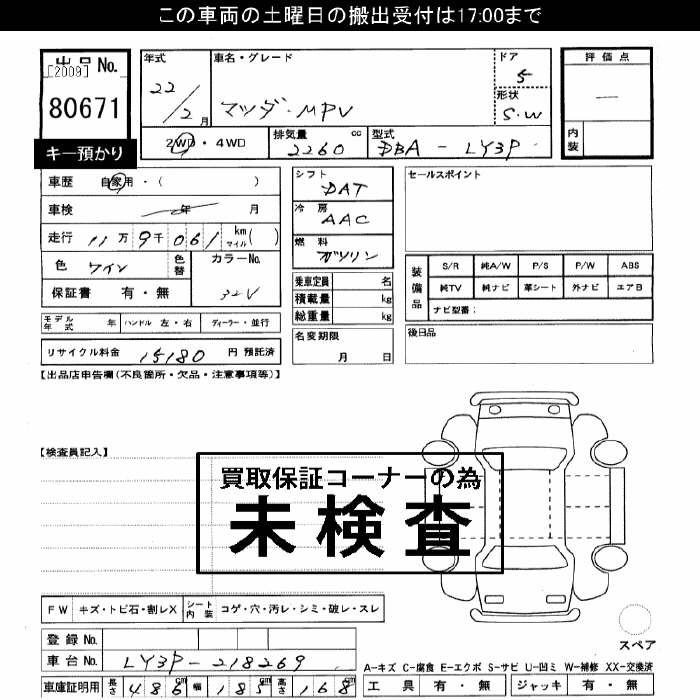 この車両の土曜日の搬出受付は17:00まで
出品 No.
[2009]
80671
キー預かり
年式
22/2月
車名・グレード
マツダ・MPV
ドア
5
形状
S・W
評価点
―
内装
2WD・4WD
排気量 cc
2260
型式
DBA - LY3P
車歴 自家用・( )
車検 年 月
走行 11万9千061 km マイル( )
色 ワイン 色替
カラーNo.
32V
保証書 有・無
シフト
DAT
冷房
AAC
燃料
ガソリン
乗車定員 名
積載量 kg
総重量 kg
セールスポイント
装備品
S/R 純A/W P/S P/W ABS
純TV 純ナビ 革シート 外ナビ エアB
ナビ型番:
モデル年式 年 ハンドル 左・右 ディーラー・並行
リサイクル料金 15180 円 預託済
名変期限
月 日
後日品
【出品店申告欄(不良箇所・欠品・注意事項等)】
【検査員記入】
買取保証コーナーの為
未検査
FW キズ・トビ石・割レX シート内装 コゲ・穴・汚レ・シミ・破レ・スレ
登録 No.
車台 No. LY3P-218269
車庫証明用 長さ 486cm 幅 185cm 高さ 168cm
スペア
A-キズ C-腐食 E-エクボ S-サビ U-凹ミ W-補修 XX-交換済
工具 有・無 ジャッキ 有・無